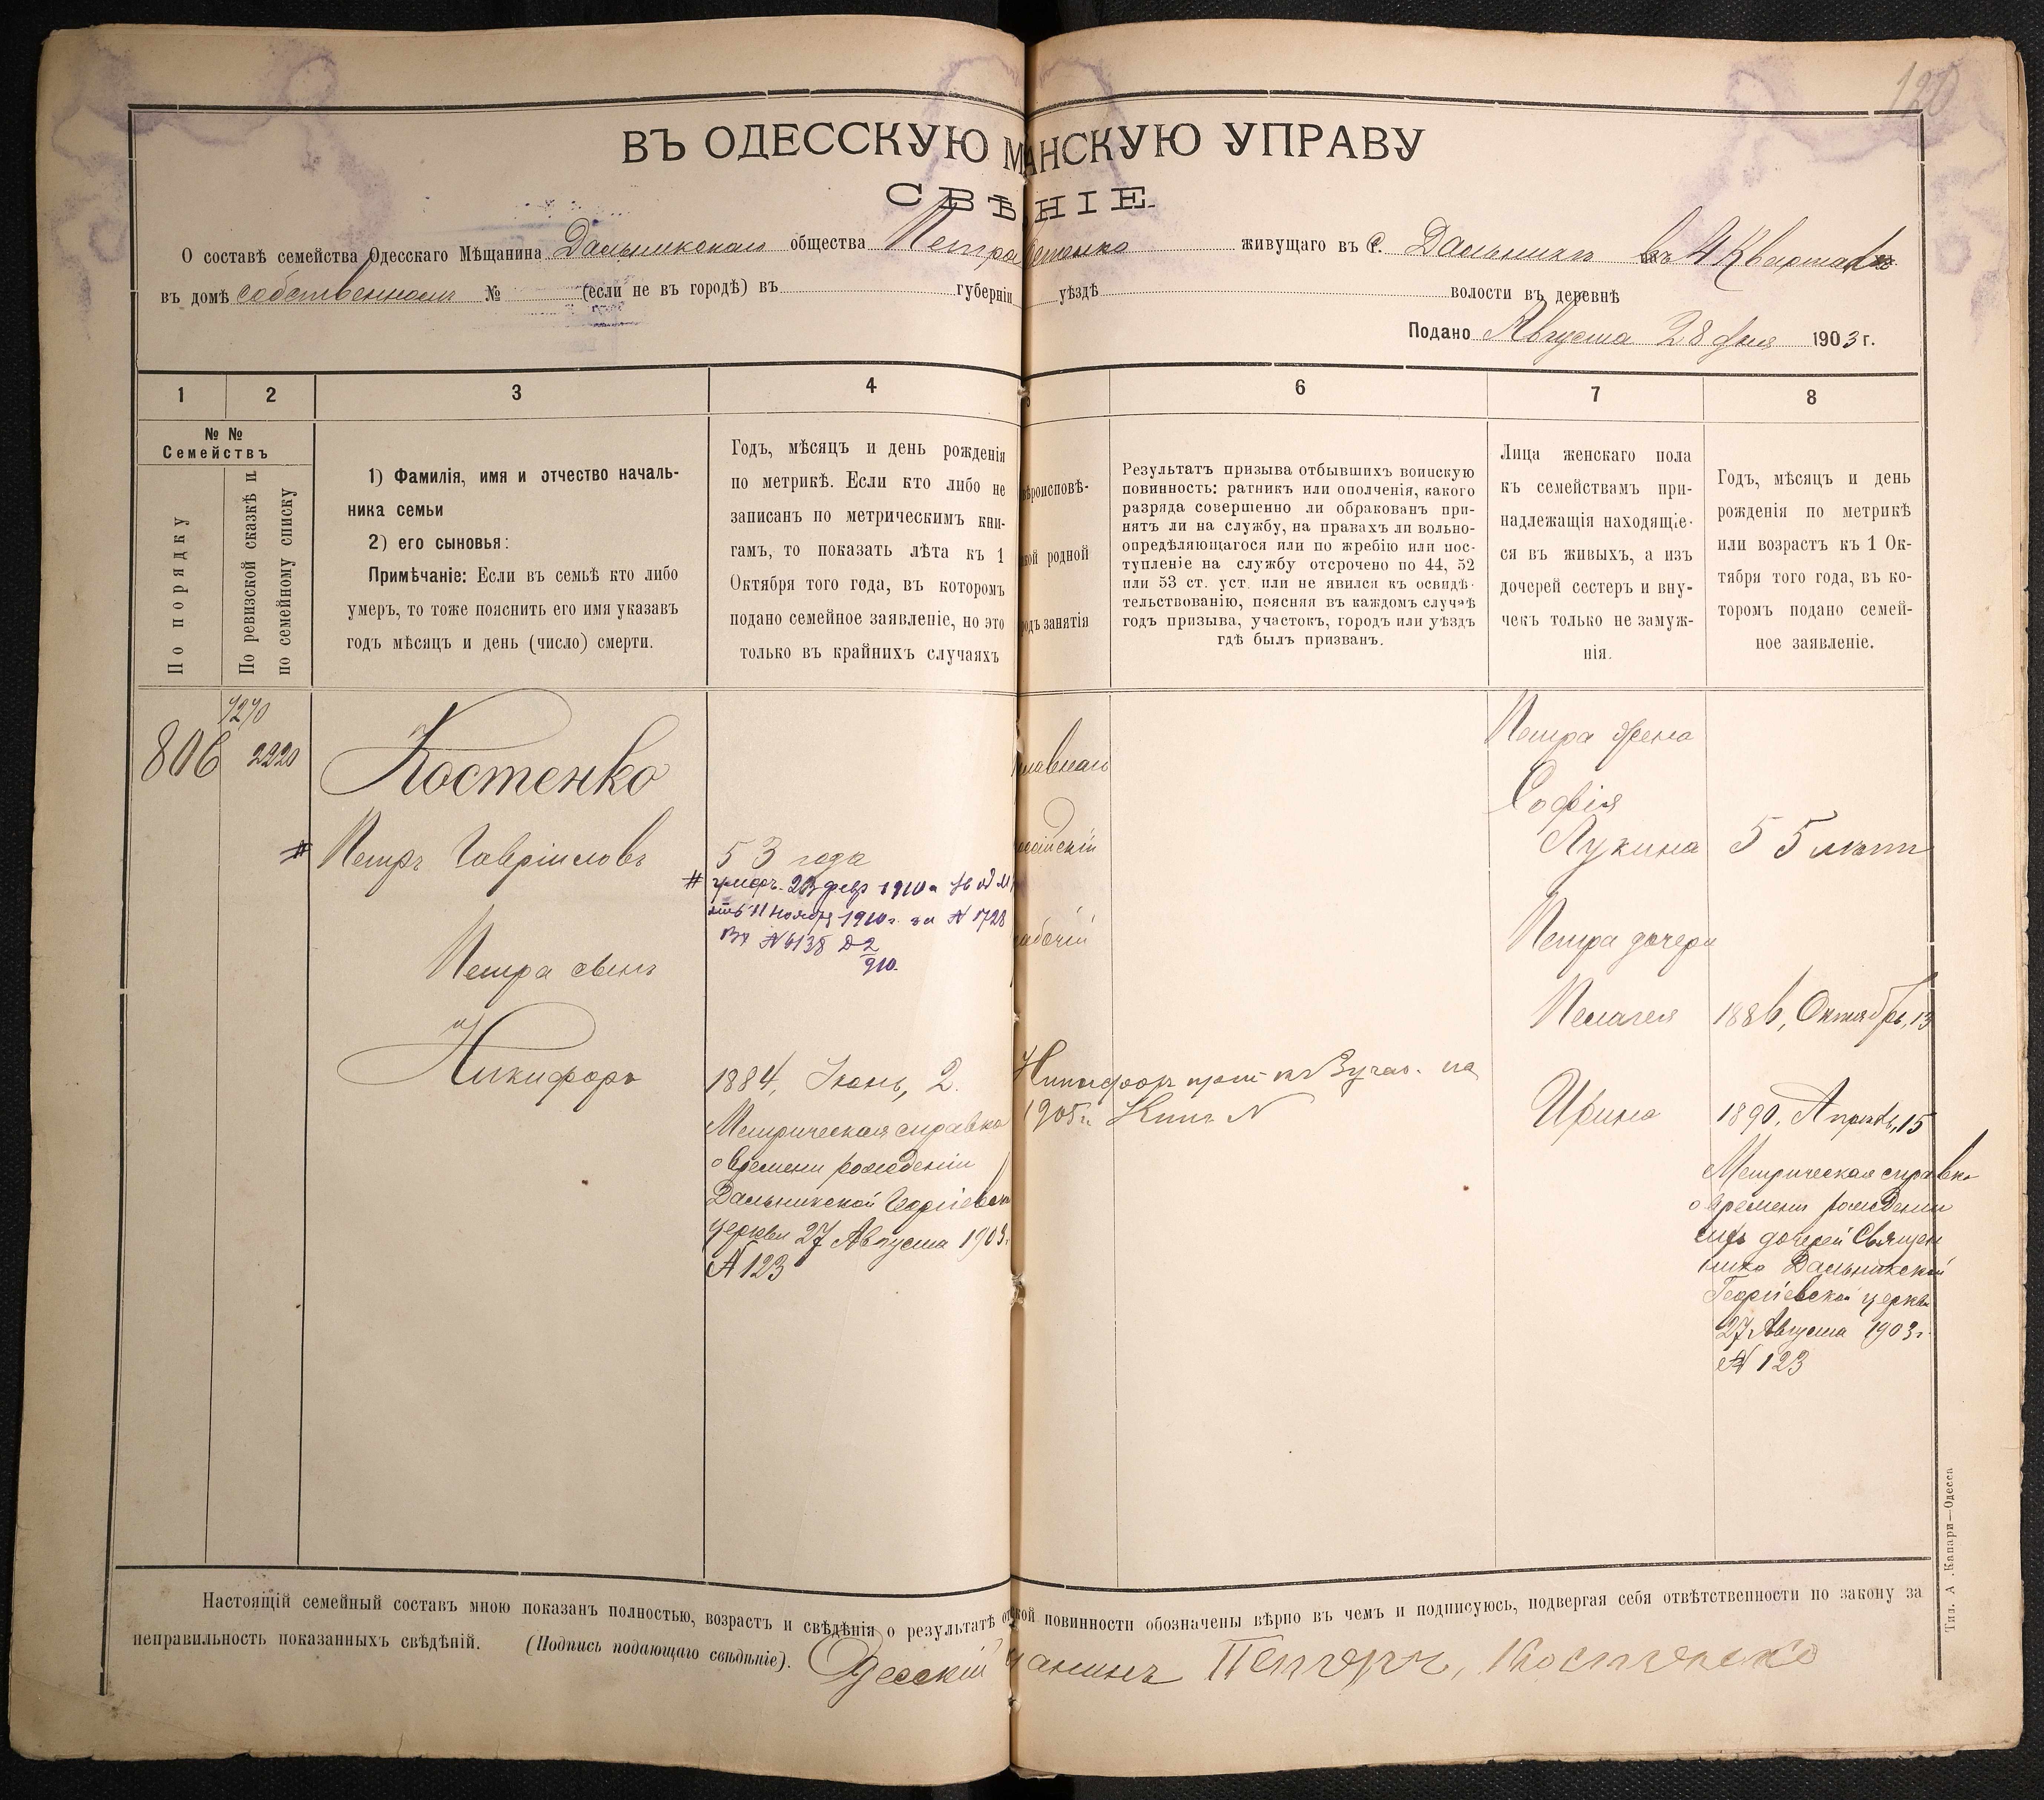 120
ВЪ ОДЕССКУЮ М АНСКУЮ УПРАВУ
СВѢ НІЕ.
О составѣ семейства Одесскаго Мѣщанина Дальникскаго общества Петра стенко живущаго въ с. Дальникъ въ 4 Квартал
въ домѣ собственномъ № (если не въ городѣ) въ губерніи уѣздѣ волости въ деревнѣ
Подано Августа 28 дня 1903 г.
1 2 3 4 6 7 8
№ №
Семействъ
По порядку
По ревизской сказкѣ и
по семейному списку
1) Фамилія, имя и отчество началь-
ника семьи
2) его сыновья:
Примѣчаніе: Если въ семьѣ кто либо
умеръ, то тоже пояснить его имя указавъ
годъ мѣсяцъ и день (число) смерти.
Годъ, мѣсяцъ и день рожденія
по метрикѣ. Если кто либо не
записанъ по метрическимъ кни-
гамъ, то показать лѣта къ 1
Октября того года, въ которомъ
подано семейное заявленіе, но это
только въ крайнихъ случаяхъ
роисповѣ-
кой родной
одъ занятія
Результатъ призыва отбывшихъ воинскую
повинность: ратникъ или ополченія, какого
разряда совершенно ли обракованъ при-
нятъ ли на службу, на правахъ ли вольно-
опредѣляющагося или по жребію или пос-
тупленіе на службу отсрочено по 44, 52
или 53 ст. уст. или не явился къ освидѣ-
тельствованію, поясняя въ каждомъ случаѣ
годъ призыва, участокъ, городъ или уѣздъ
гдѣ былъ призванъ.
Лица женскаго пола
къ семействамъ при-
надлежащія находящіе-
ся въ живыхъ, а изъ
дочерей сестеръ и вну-
чекъ только не замуж-
нія.
Годъ, мѣсяцъ и день
рожденія по метрикѣ
или возрастъ къ 1 Ок-
тября того года, въ ко-
торомъ подано семей-
ное заявленіе.
806
7270
2220
Костенко
# Петръ Гавріиловъ
Петра сынъ
Никифоръ
53 года
# 23 февр 1910
11 Ноября 1910 г. за № 1728
Вх № 6138 Д 2
910.
1884, Іюнь, 2.
Метрическая справка
о времени рожденіи
Дальникской Георгіевск
церкви 27 Августа 1903.
№ 123
славнаго
сійскій
абочій
Никифоръ на
1905 г. №
Петра жена
Софія
Лукина 55 лѣтъ
Петра дочери
Пелагея 1886, Октябрь, 13
Ирина 1890, Апрѣль, 15
Метрическая справка
о времени рожденіи
сихъ дочерей Священ
ника Дальникской
Георгіевской церкви
27 Августа 1903 г.
№ 123
Настоящій семейный составъ мною показанъ полностью, возрастъ и свѣдѣнія о результатѣ от кой повинности обозначены вѣрно въ чемъ и подписуюсь, подвергая себя отвѣтственности по закону за
неправильность показанныхъ свѣдѣній. (Подпись подающаго свѣдѣніе). Одесскій щанинъ Петръ, Костенко
Тип. А. Капари—Одесса